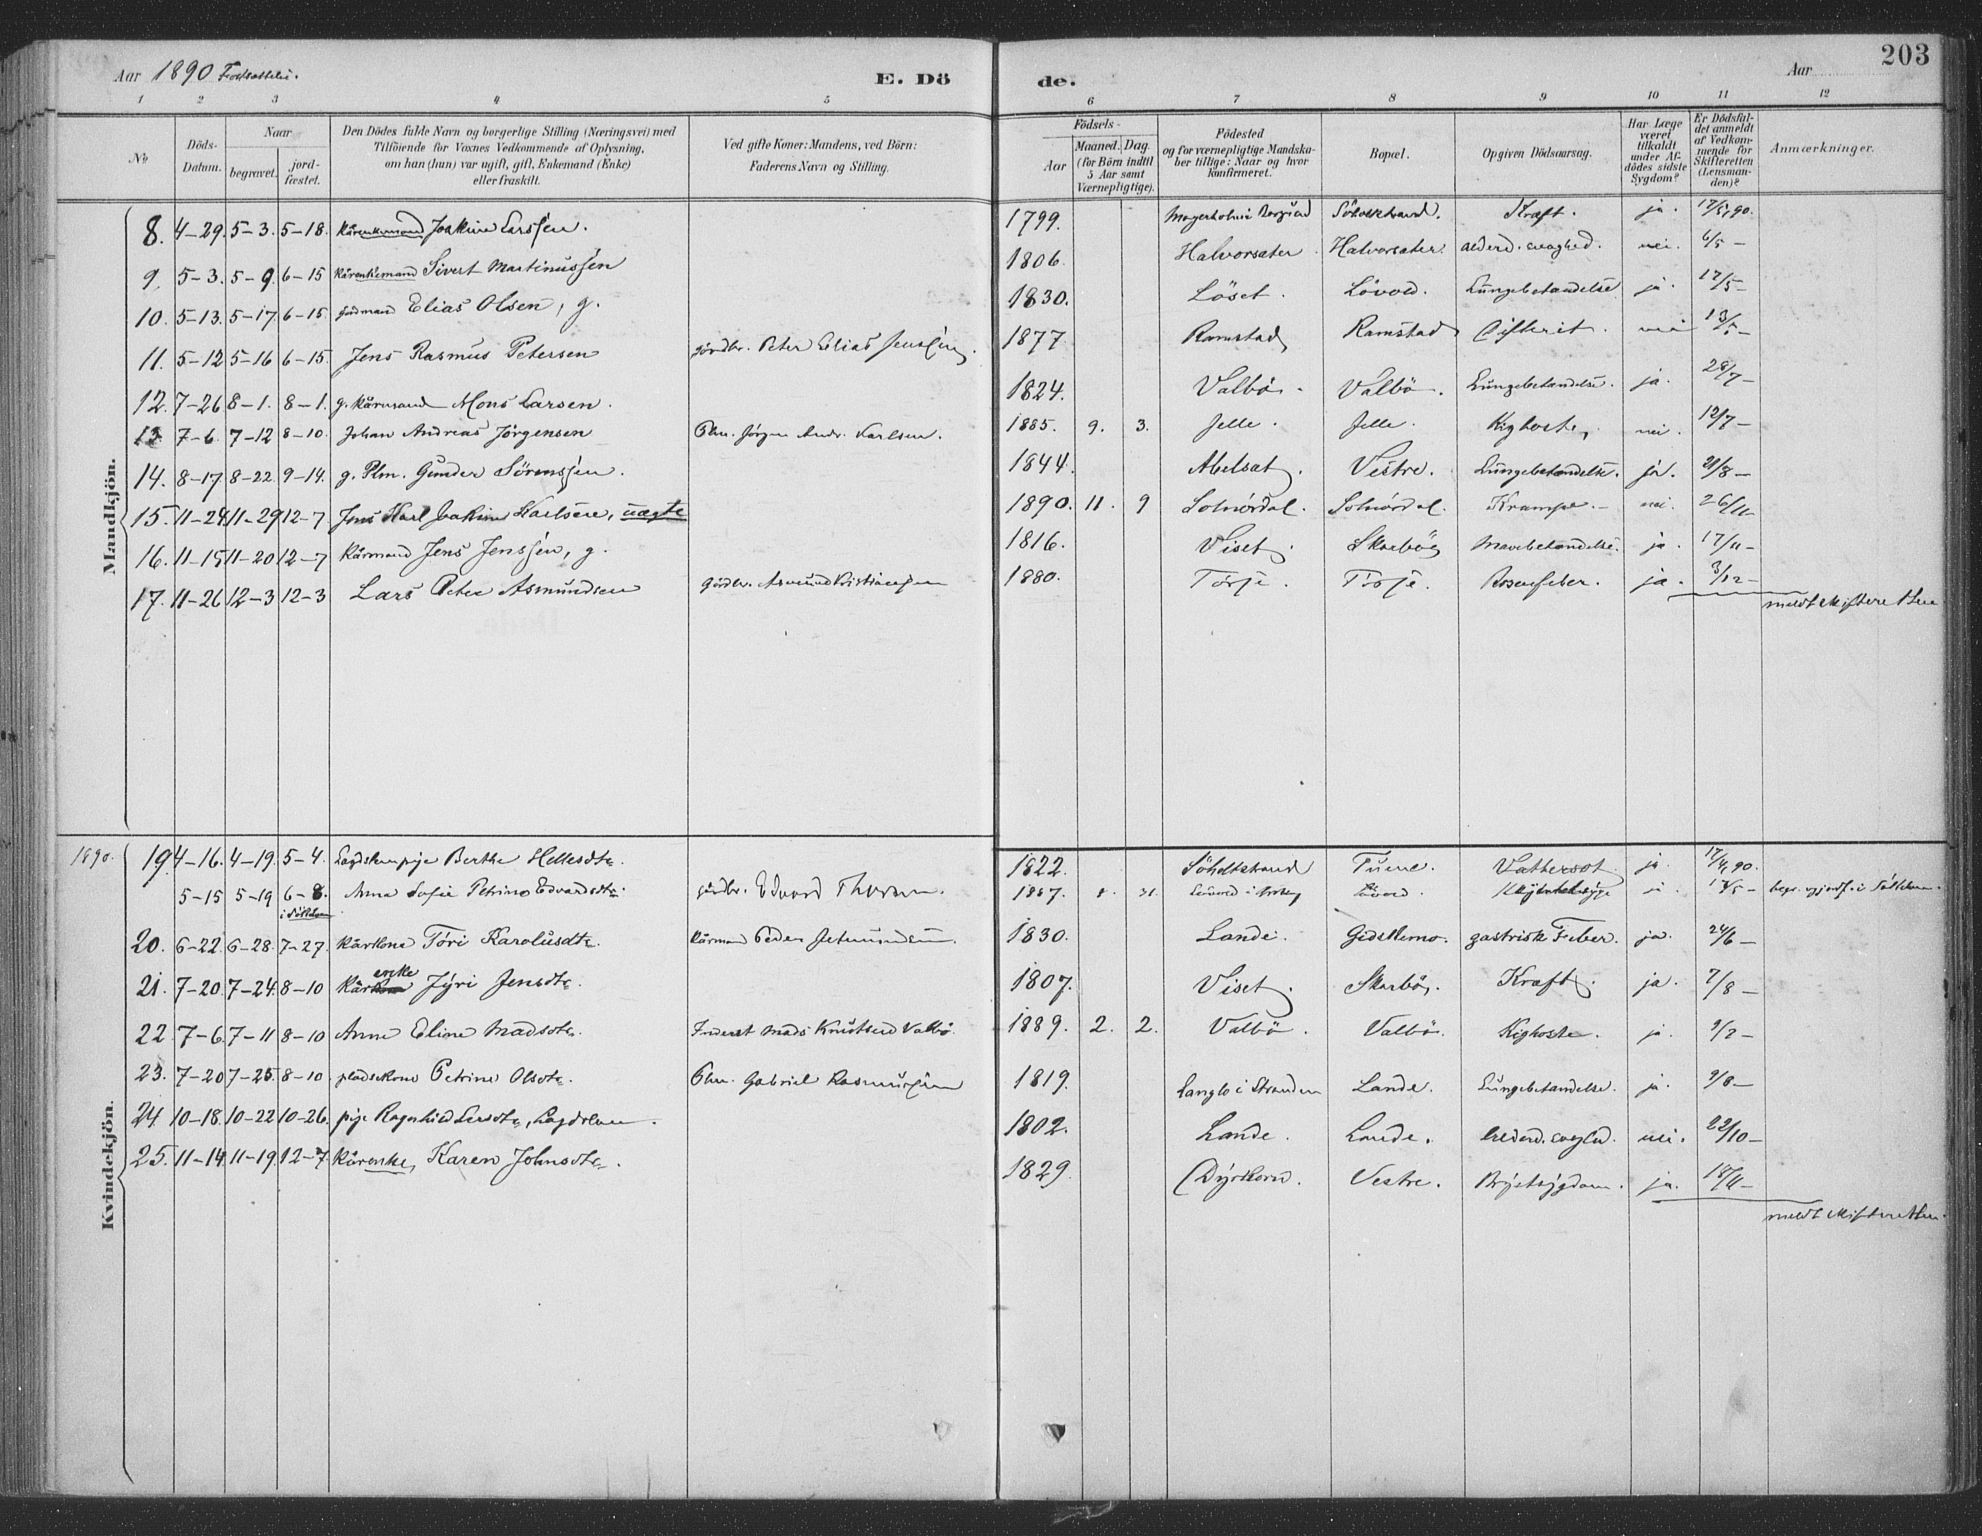 203
Aar 1890 Fortsættelse.
E. Döde.
Aar
1 2 3 4 5 6 7 8 9 10 11 12
No
Döds-Datum.
Naar
begravet.
jord-fæstet.
Den Dödes fulde Navn og borgerlige Stilling (Næringsvei) med
Tilföiende for Voxnes Vedkommende af Oplysning,
om han (hun) var ugift, gift, Enkemand (Enke)
eller fraskilt.
Ved gifte Koner: Mandens, ved Börn:
Faderens Navn og Stilling.
Födsels-
Aar
Maaned. Dag.
(for Börn indtil
5 Aar samt
Værnepligtige).
Födested
og for værnepligtige Mandska-
ber tillige: Naar og hvor
konfirmeret.
Bopæl.
Opgiven Dödsaarsag.
Har Læge
været
tilkaldt
under Af-
dödes sidste
Sygdom?
Er Dödsfal-
det anmeldt
af Vedkom-
mende for
Skifteretten
(Lensman-
den)?
Anmærkninger.
Mandkjön.
8. 4-29. 5-3. 5-18. Kårenkemand Joakim Larssen. 1799. Kraft. ja. 12/5 90.
9. 5-3. 5-9. 6-15 kårenkemand Sivert Martinussen 1806. Halvorsæter Halvorsæter. alderd. svaghed. nei. 6/5 -
10. 5-13. 5-17. 6-15. gårdmand Elias Olsen, g. 1830. Löset. Lövold. Lungebetændelse ja. 17/5 -
11. 5-12 5-16 6-15. Jens Rasmus Petersen gårdbr. Peter Elias Jenssen. 1877. Ramstad Ramstad Difterit. nei 13/5 -
12. 7-26 8-1. 8-1. g. kårmand Mons Larsen. 1824. Valbö. Valbö. Lungebetændelse. ja. 28/7 -
13 7-6. 7-12 8-10. Johan Andreas Jörgensen Plm. Jörgen Andr. Karlsen. 1885. 9. 3. Jelle. Jelle. Kighoste, nei. 12/7 -
14. 8-17 8-22 9-14. g. Plm. Gunder Sörenssen. 1844. Abelsæt. Vestre. Lungebetændelse. ja. 21/8 -
15. 11-24 11-29 12-7 Jens Karl Joakim Karlsen, uægte 1890. 11. 9 Solnördal. Solnördal. Krampe. nei. 26/11
16. 11-15 11-20 12-7 Kårmand Jens Jenssen, g. 1816. Viset. Skarbö Mavebetændelse. ja. 17/11 -
17. 11-26 12-3 12-3 Lars Peter Asmundsen gårdbr. Asmund Kristianssen 1880. Törje. Törje. Rosenfeber. ja. 3/12 -
meldt skifteretten
Kvindekjön.
1890. 19. 4-16. 4-19. 5-4. Lægdslempige Berthe Hellesdtr. 1822. Söholtstrand Tuene. Vathersot ja. 17/4 90.
5-15 5-19 6-8. Anna Sofie Petrine Edvardsdtr. gårdbr. Edvard Thoresen. 1887. 8. 31. Lövold
20. 6-22. 6-28. 7-27. Kårkone Töri Karolusdtr. Kårmand Peder Jetmundsen. 1830. Lande. Gidskemo. gastrisk Feber. ja. 24/6 -
21. 7-20. 7-24. 8-10 Kårenke Jÿri Jensdtr. 1807. Viset. Skarbö. Kræft. ja. 7/8 -
22 7-6. 7-11 8-10 Anne Eline Madsdtr. Inderst Mads Knutsen Valbö. 1889. 2. 2. Valbö. Valbö. Kighoste. ja. 9/7 -
23. 7-20 7-25. 8-10. pladsekone Petrine Olsdtr. Plm. Gabriel Rasmussen 1819. Langlo i Stranden Lande. Lungebetændelse. ja. 9/8 -
24 10-18. 10-22 10-26. pige Ragnhild Larsdtr, Lægdslem. 1802. Lande. Lande. alderd. svaghd. nei. 22/10 -
25. 11-14. 11-19. 12-7. Kårenke, Karen Johnsdtr. 1829. Dyrkorn. Vestre. Brystsygdom. ja. 18/11 -
meldt skifteretten.